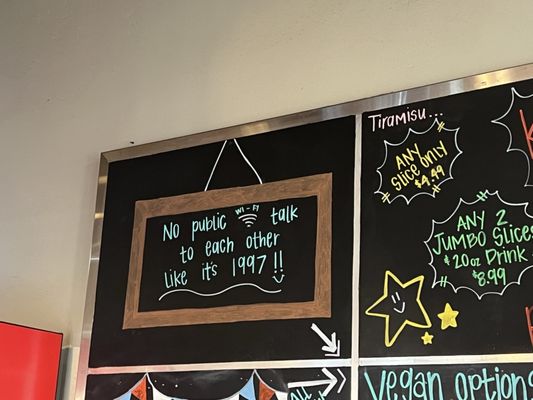 No public WI-FI talk
to each other
Like it's 1997!!
Tiramisu...
ANY
Slice only
$4.99
ANY 2
JUMBO Slices
& 20oz Drink
$8.99
Vegan Option